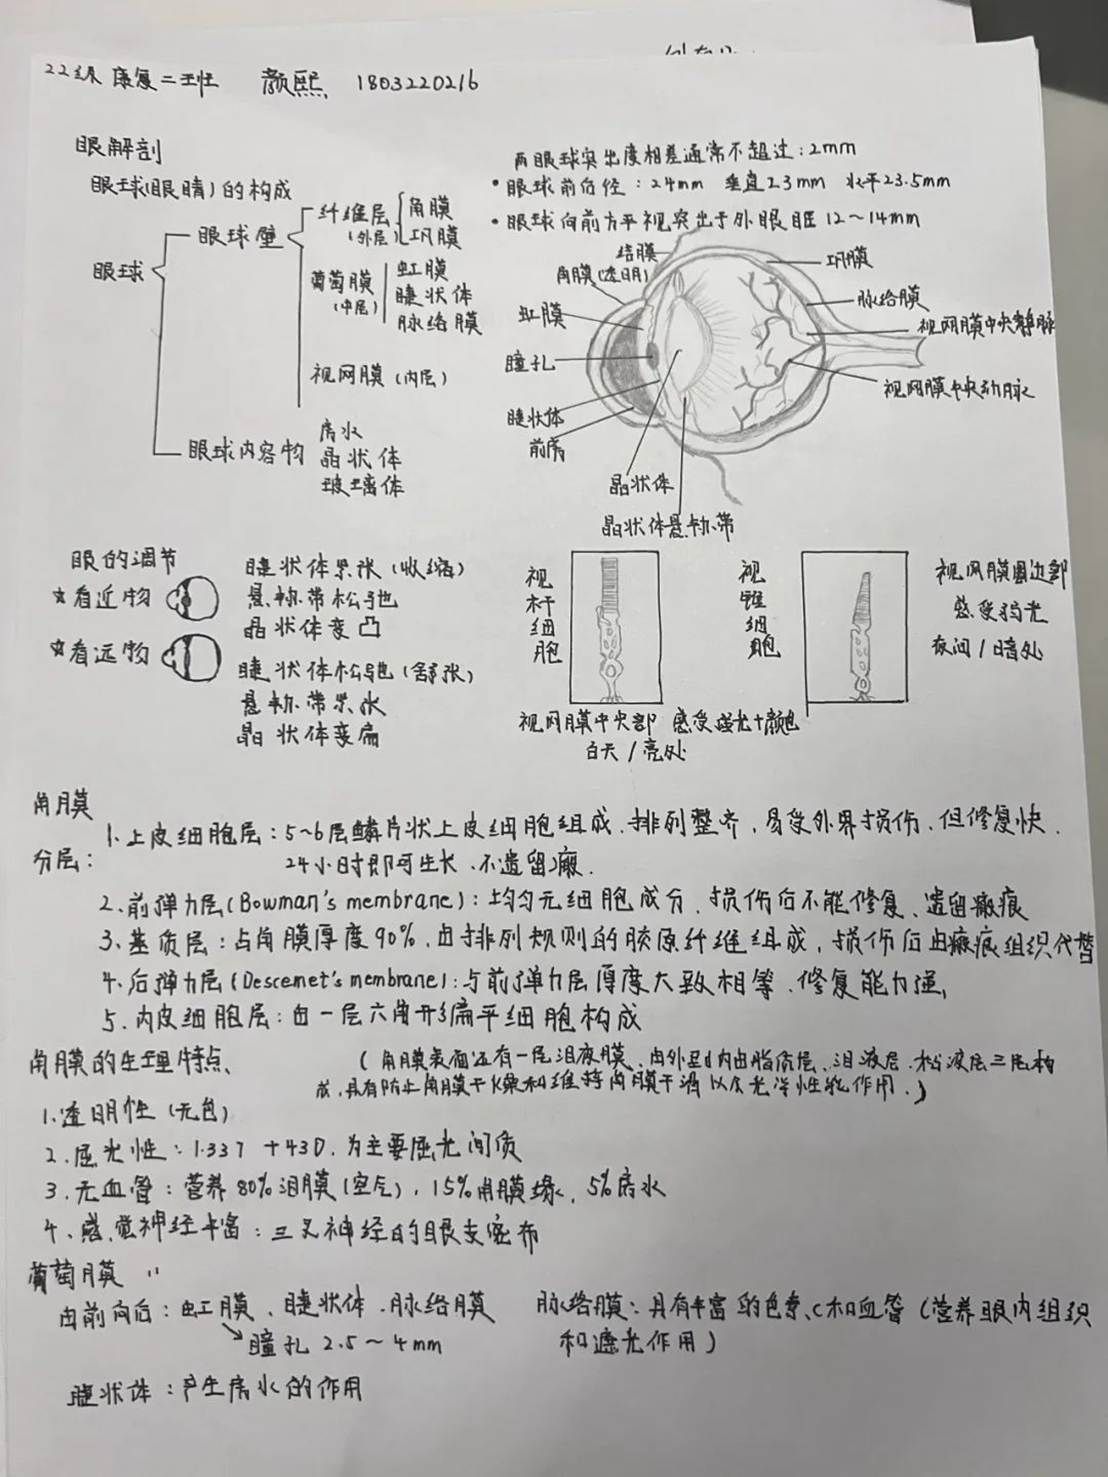 22级 康复二班 颜熙 1803220216
眼解剖
眼球(眼睛)的构成
眼球
眼球壁
纤维层
(外层)
角膜
巩膜
葡萄膜
(中层)
虹膜
睫状体
脉络膜
视网膜(内层)
眼球内容物
房水
晶状体
玻璃体
两眼球突出度相差通常不超过:2mm
•眼球前后径:24mm 垂直23mm 水平23.5mm
•眼球向前方平视突出于外眼眶12~14mm
结膜
角膜(透明)
虹膜
瞳孔
睫状体
前房
晶状体
晶状体悬韧带
巩膜
脉络膜
视网膜中央静脉
视网膜中央动脉
眼的调节
☆看近物
睫状体紧张(收缩)
悬韧带松弛
晶状体变凸
☆看远物
睫状体松弛(舒张)
悬韧带紧张
晶状体变扁
视杆细胞
视锥细胞
视网膜周边部
感受弱光
夜间/暗处
视网膜中央部 感受强光+颜色
白天/亮处
角膜
分层:
1.上皮细胞层:5~6层鳞片状上皮细胞组成、排列整齐,易受外界损伤、但修复快.
24小时即可生长、不遗留瘢.
2、前弹力层(Bowman's membrane):均匀无细胞成分、损伤后不能修复、遗留瘢痕
3、基质层:占角膜厚度90%,由排列规则的胶原纤维组成,损伤后由瘢痕组织代替
4、后弹力层(Descemet's membrane):与前弹力层厚度大致相等、修复能力强,
5、内皮细胞层:由一层六角形扁平细胞构成
角膜的生理特点、
(角膜表面还有一层泪液膜,由外到内由脂质层、泪液层、粘液层三层构
成,具有防止角膜干燥和维持角膜干滑以及光学性能作用.)
1.透明性(无色)
2.屈光性:1.337 +43D.为主要屈光间质
3.无血管:营养80%泪膜(空气),15%角膜缘,5%房水
4、感觉神经丰富:三叉神经的眼支密布
葡萄膜
由前向后:虹膜、睫状体、脉络膜
瞳孔 2.5~4mm
脉络膜:具有丰富的色素、C和血管(营养眼内组织
和遮光作用)
睫状体:产生房水的作用